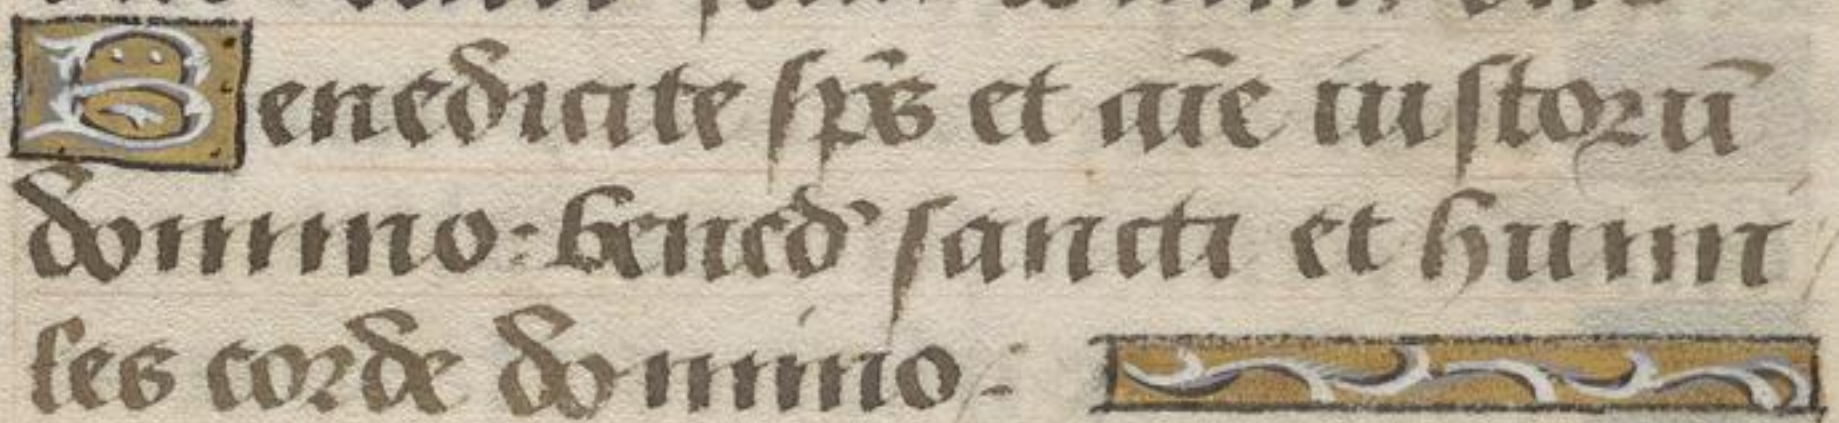 Benedicite sp̄s et aīe iustorū
domino: bened' sancti et humi
les corde domino: